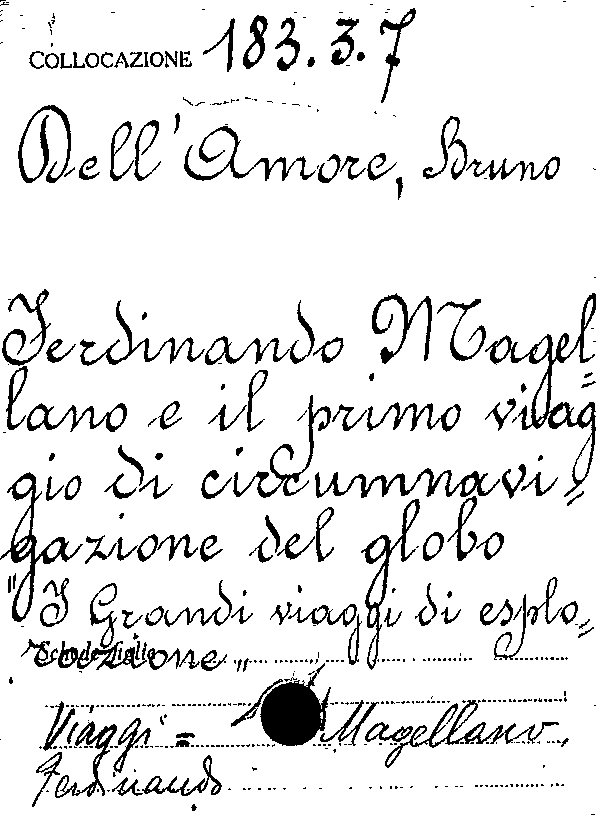 COLLOCAZIONE 183.3.7
Dell'Amore, Bruno
Ferdinando Magel=
lano e il primo viag
gio di circumnavi=
gazione del globo
"I Grandi viaggi di esplo=
razione"
Viaggi =
Magellano,
Ferdinando